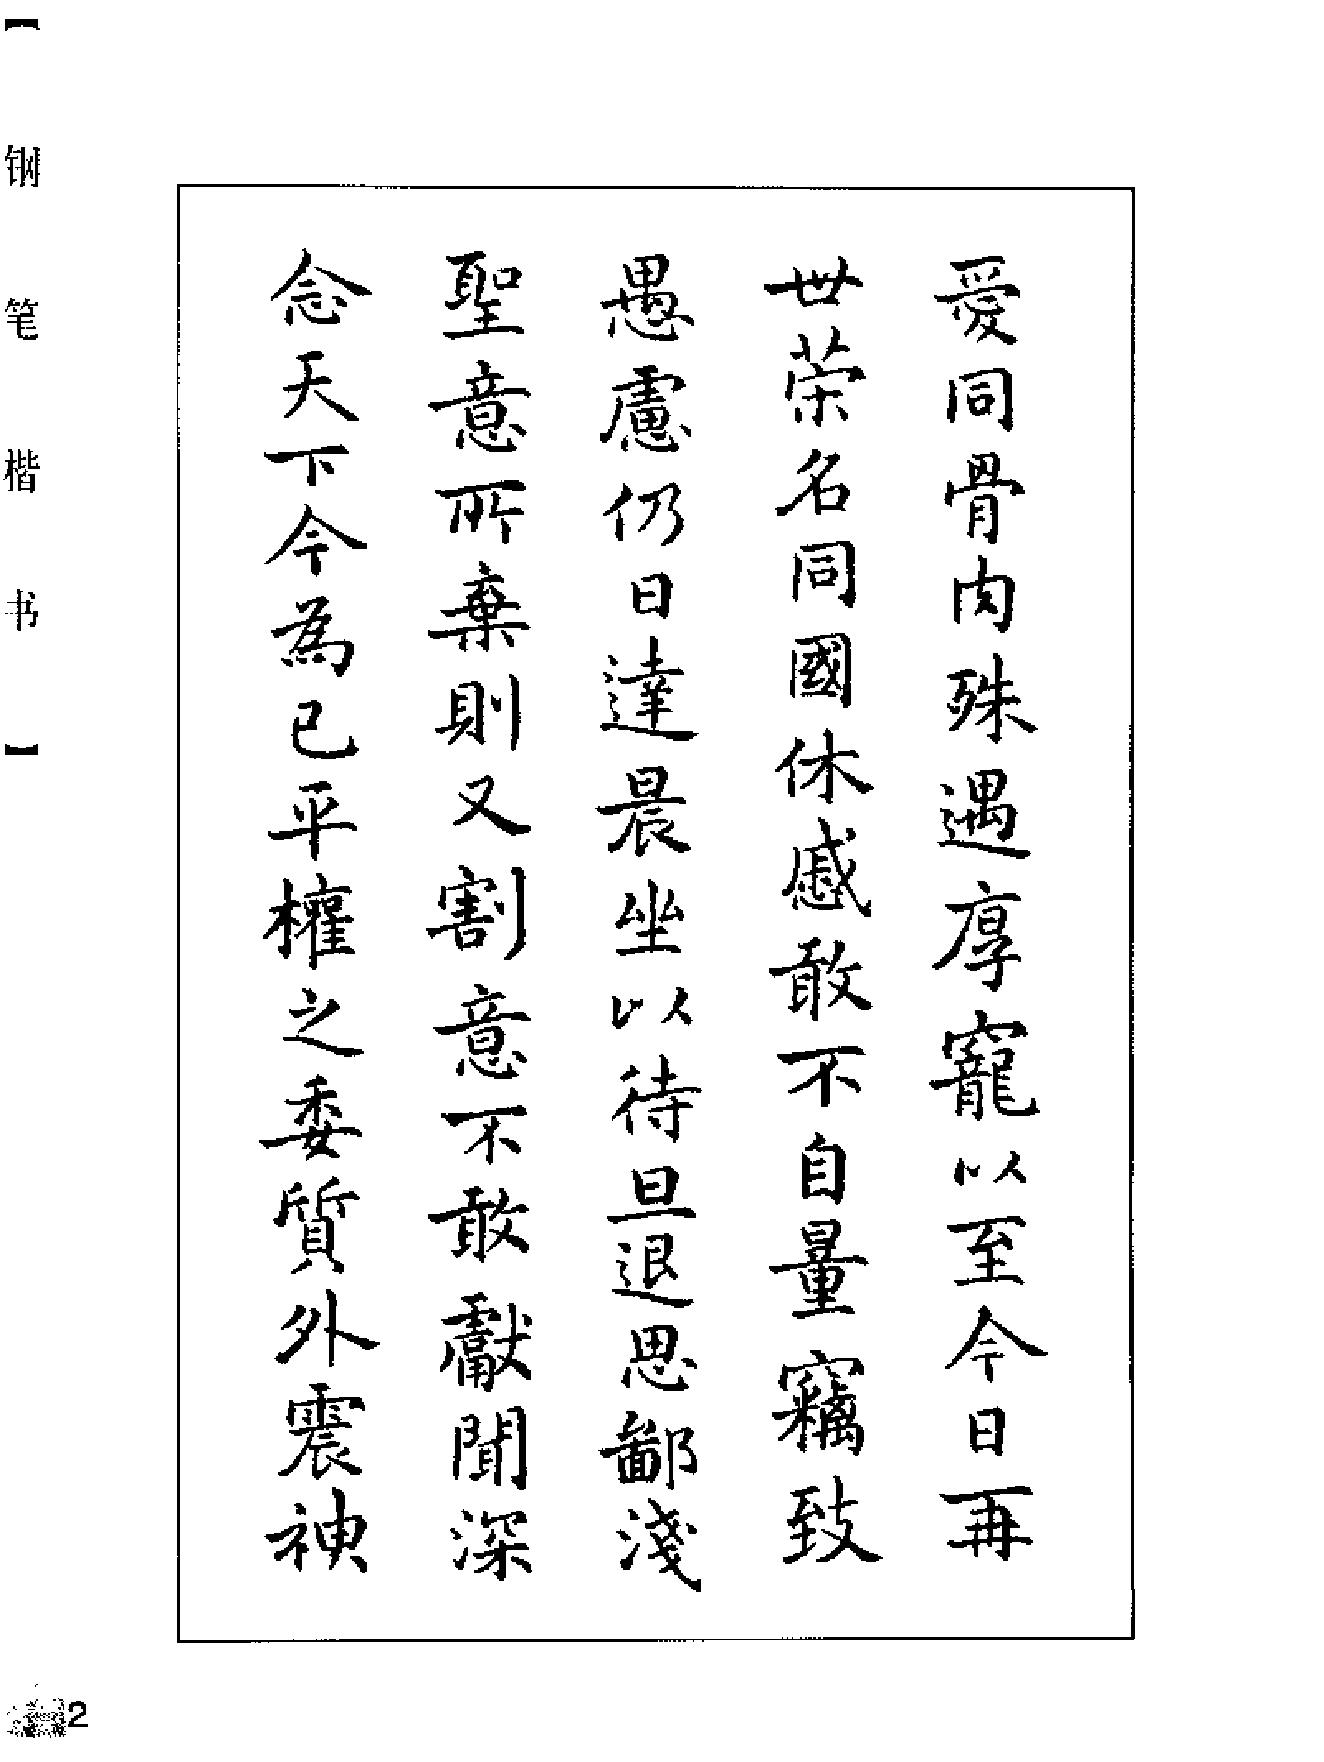 愛同骨肉殊遇厚寵以至今日再
世荣名同國休慼敢不自量竊致
愚慮仍日達晨坐以待旦退思鄙淺
聖意所棄則又割意不敢獻聞深
念天下今為已平權之委質外震神
【钢笔楷书】
2